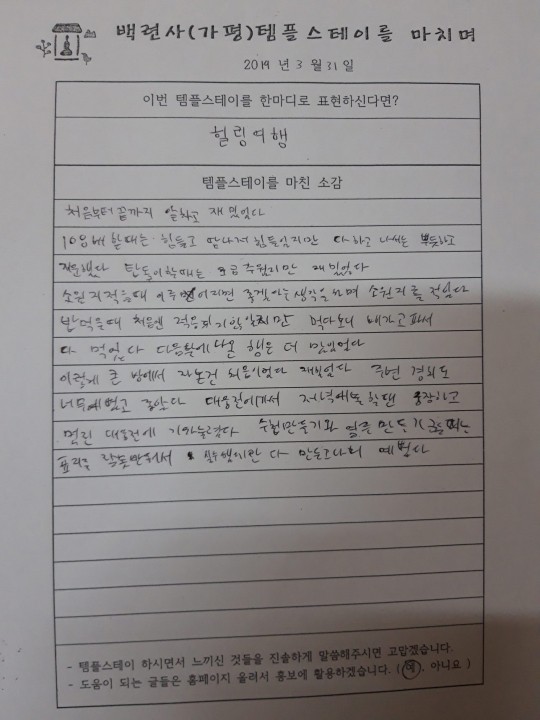 백련사(가평)템플스테이를 마치며
2019 년 3 월 31 일
이번 템플스테이를 한마디로 표현하신다면?
힐링여행
템플스테이를 마친 소감
처음부터 끝까지 알차고 재밌었다
108배 할때는 힘들고 땀나서 힘들었지만 다 하고 나서는 뿌듯하고
탑돌이할때는 조금 추웠지만 재밌었다
소원지적을때 이루어지면 좋겠다는생각을 하며 소원지를 적었다
밥먹을때 처음엔 적응되지않았지만 먹다보니 배가고파서
다 먹었다 다음날에 나온 빵은 더 맛있었다
이렇게 큰 방에서 자는건 처음이었다 재밌었다 주변 경치도
너무예뻤고 좋았다 대웅전에가서 저녁예불할땐 웅장하고
대웅전에 수험만들기와 염주만들기할때는
다 만들고나니 예뻤다
- 템플스테이 하시면서 느끼신 것들을 진솔하게 말씀해주시면 고맙겠습니다.
- 도움이 되는 글들은 홈페이지 올려서 홍보에 활용하겠습니다. ( 예, 아니요 )